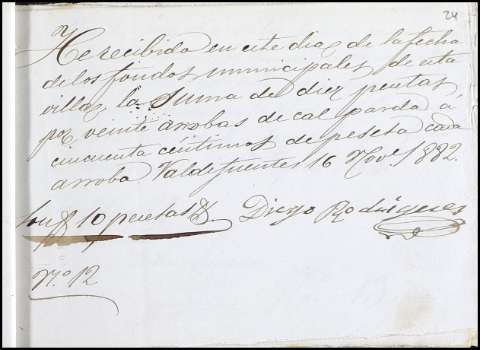 24
He recibido en este dia de la fecha
de los fondos municipales de esta
villa, la suma de diez pesetas,
por veinte arrobas de cal parda a
cincuenta centimos de peseta cada
arroba Valdefuentes 16 Novе. 1882.
Son 10 pesetas Diego Rodrigeses
N.o 12